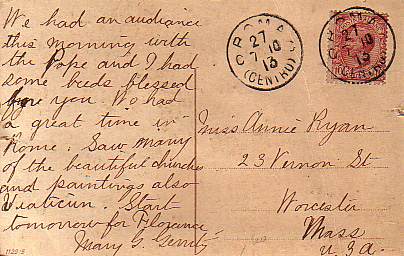 We had an audience
this morning with
the Pope and I had
some beeds blessed
for you. We had
a great time in
Rome. Saw many
of the beautiful churches
and paintings also
Viaticun. Start
tomorrow for Florence.
Mary G.
1129-5
ROMA
27
7 10
13
(CENTRO)
27
10
13
Miss Annie Ryan
23 Vernon St
Worcester
Mass
U.S.a.